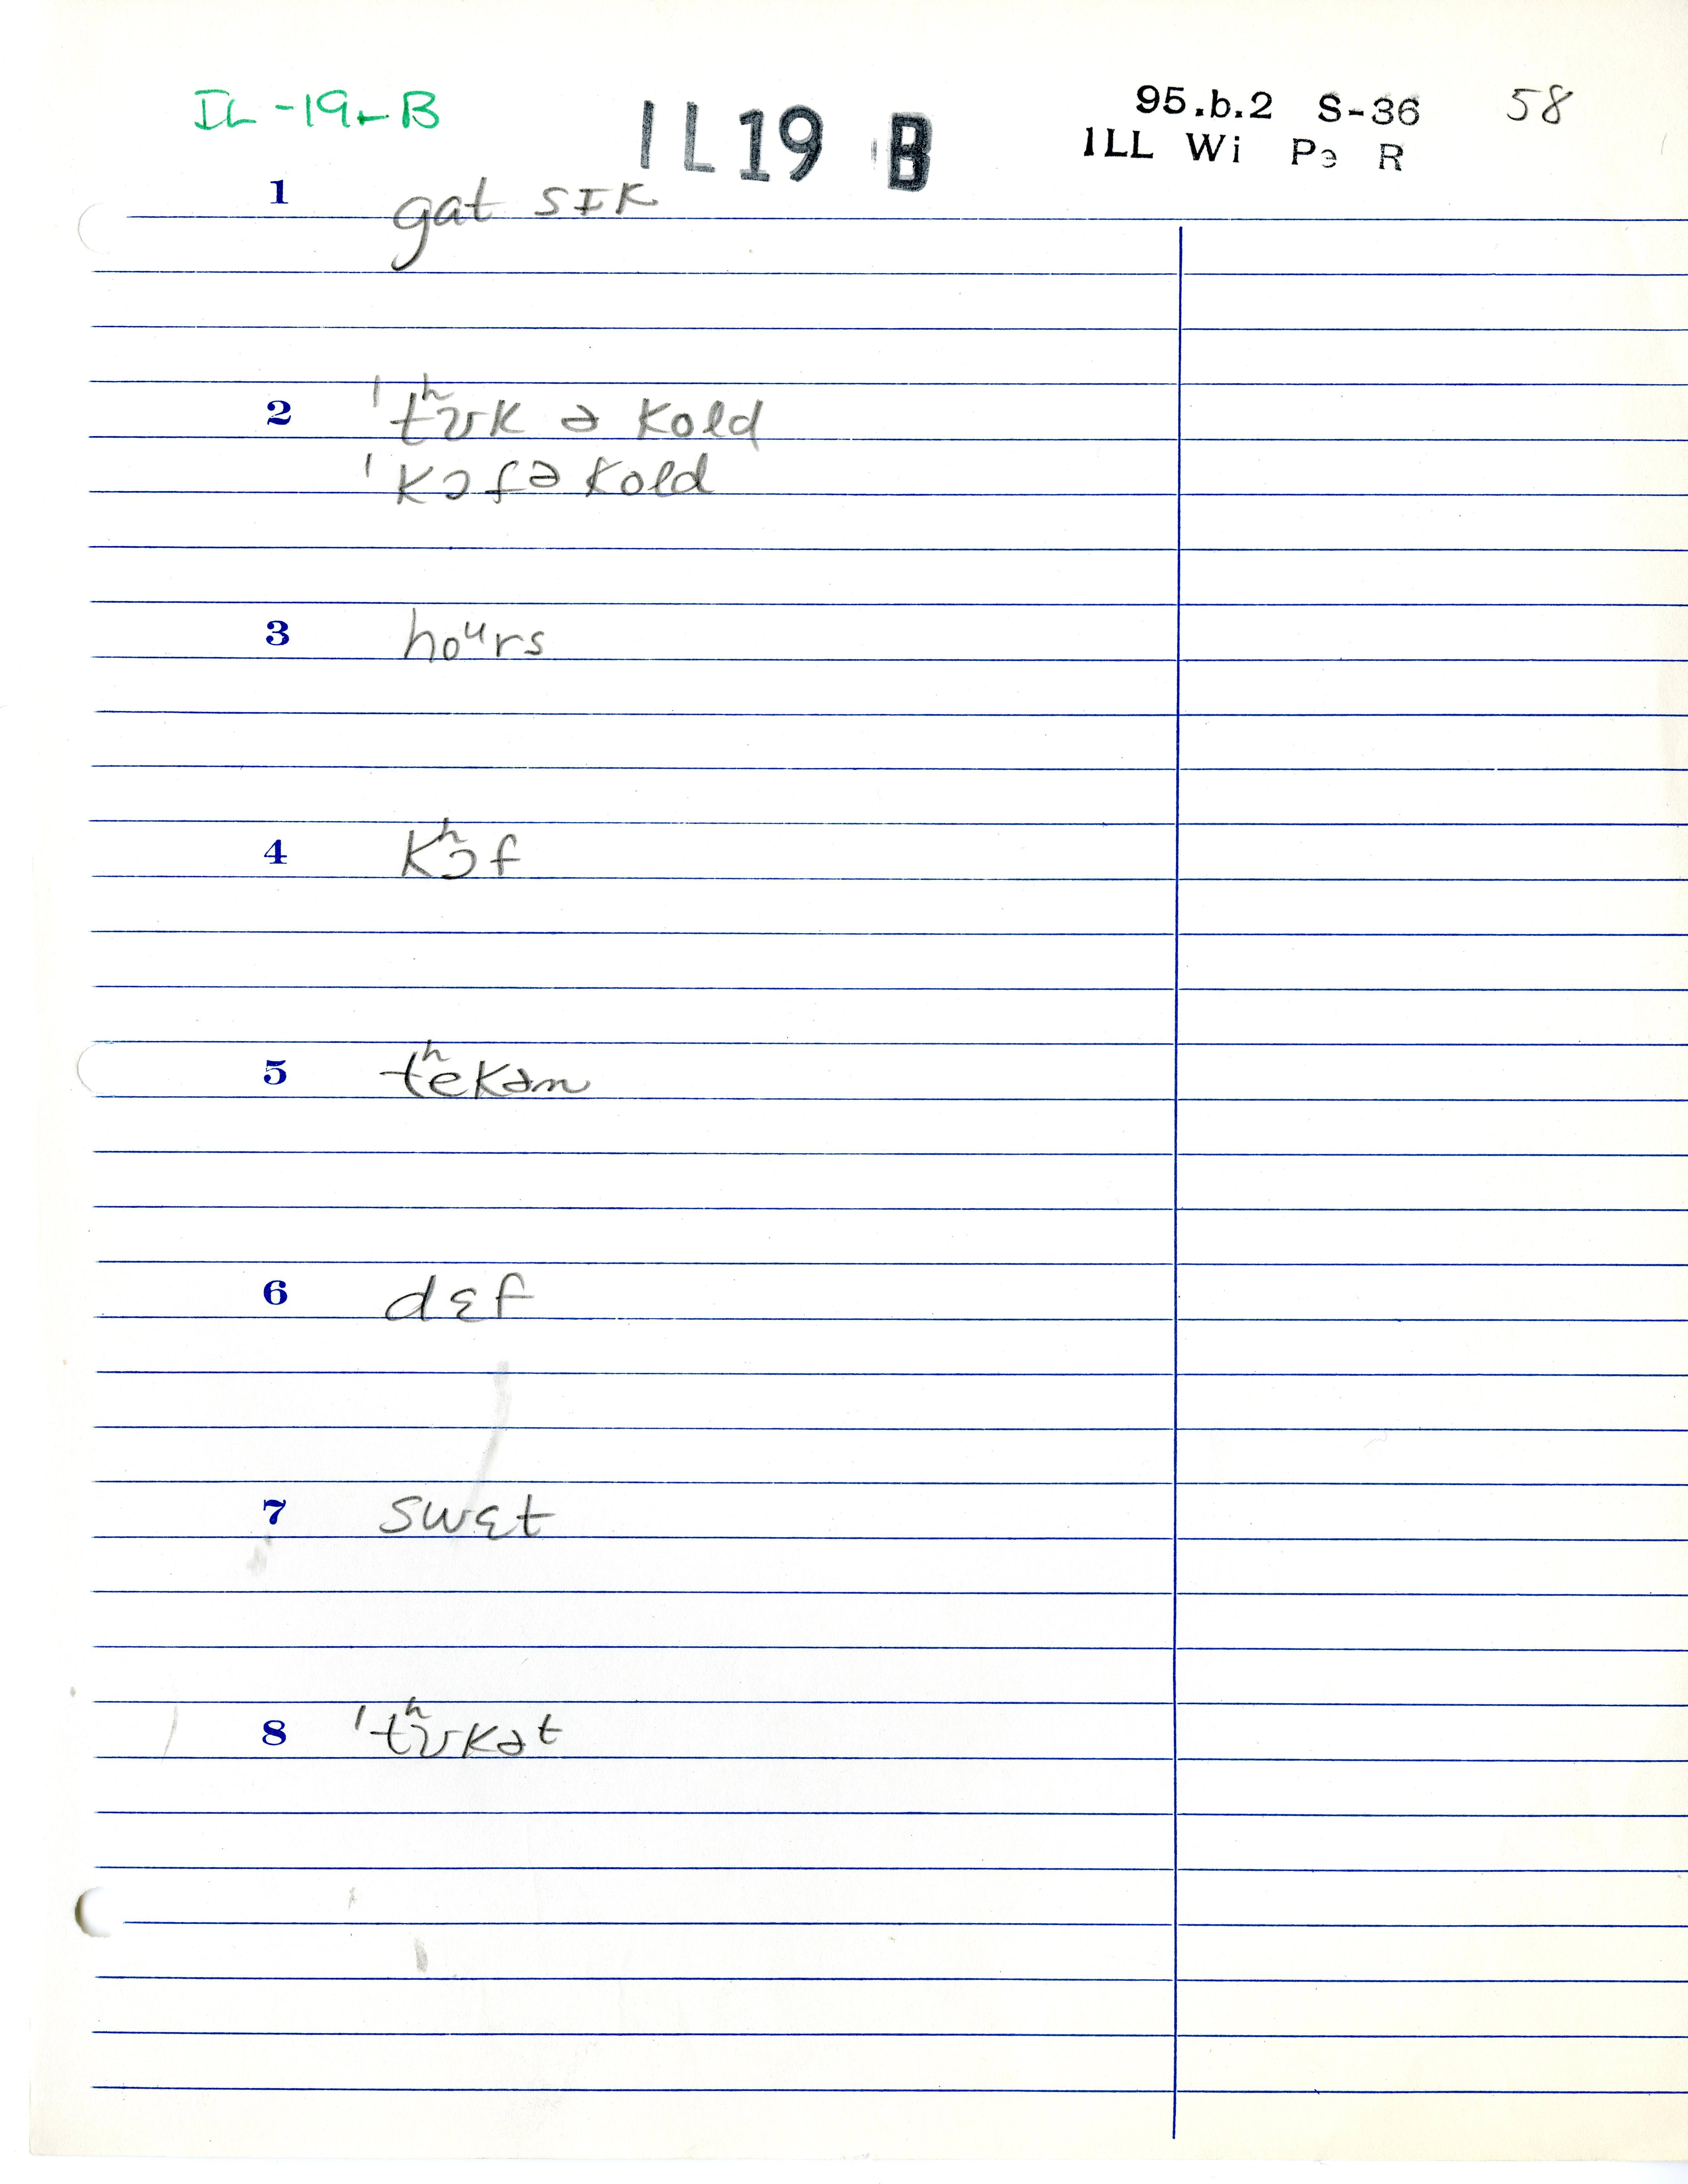 IL-19-B
IL19 B
95.b.2 S-36 58
ILL Wi Pə R
1 gat sɪk
2 ˈtʰʊk ə kold
ˈkɔf ə kold
3 hoᵘrs
4 kʰɔf
5 tʰekən
6 dɛf
7 swɛt
8 ˈtʰʊkət